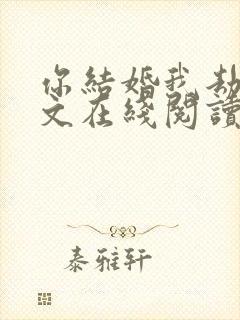 你結婚我劫
文在綫閱讀
泰雅轩